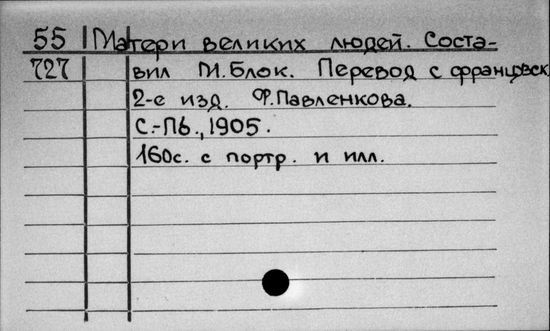 55 Матери великих людей. Соста-
727 вил М.Блок. Перевод с французск.
2-е изд. Ф.Павленкова.
С.-Пб., 1905.
160с. с портр. и илл.